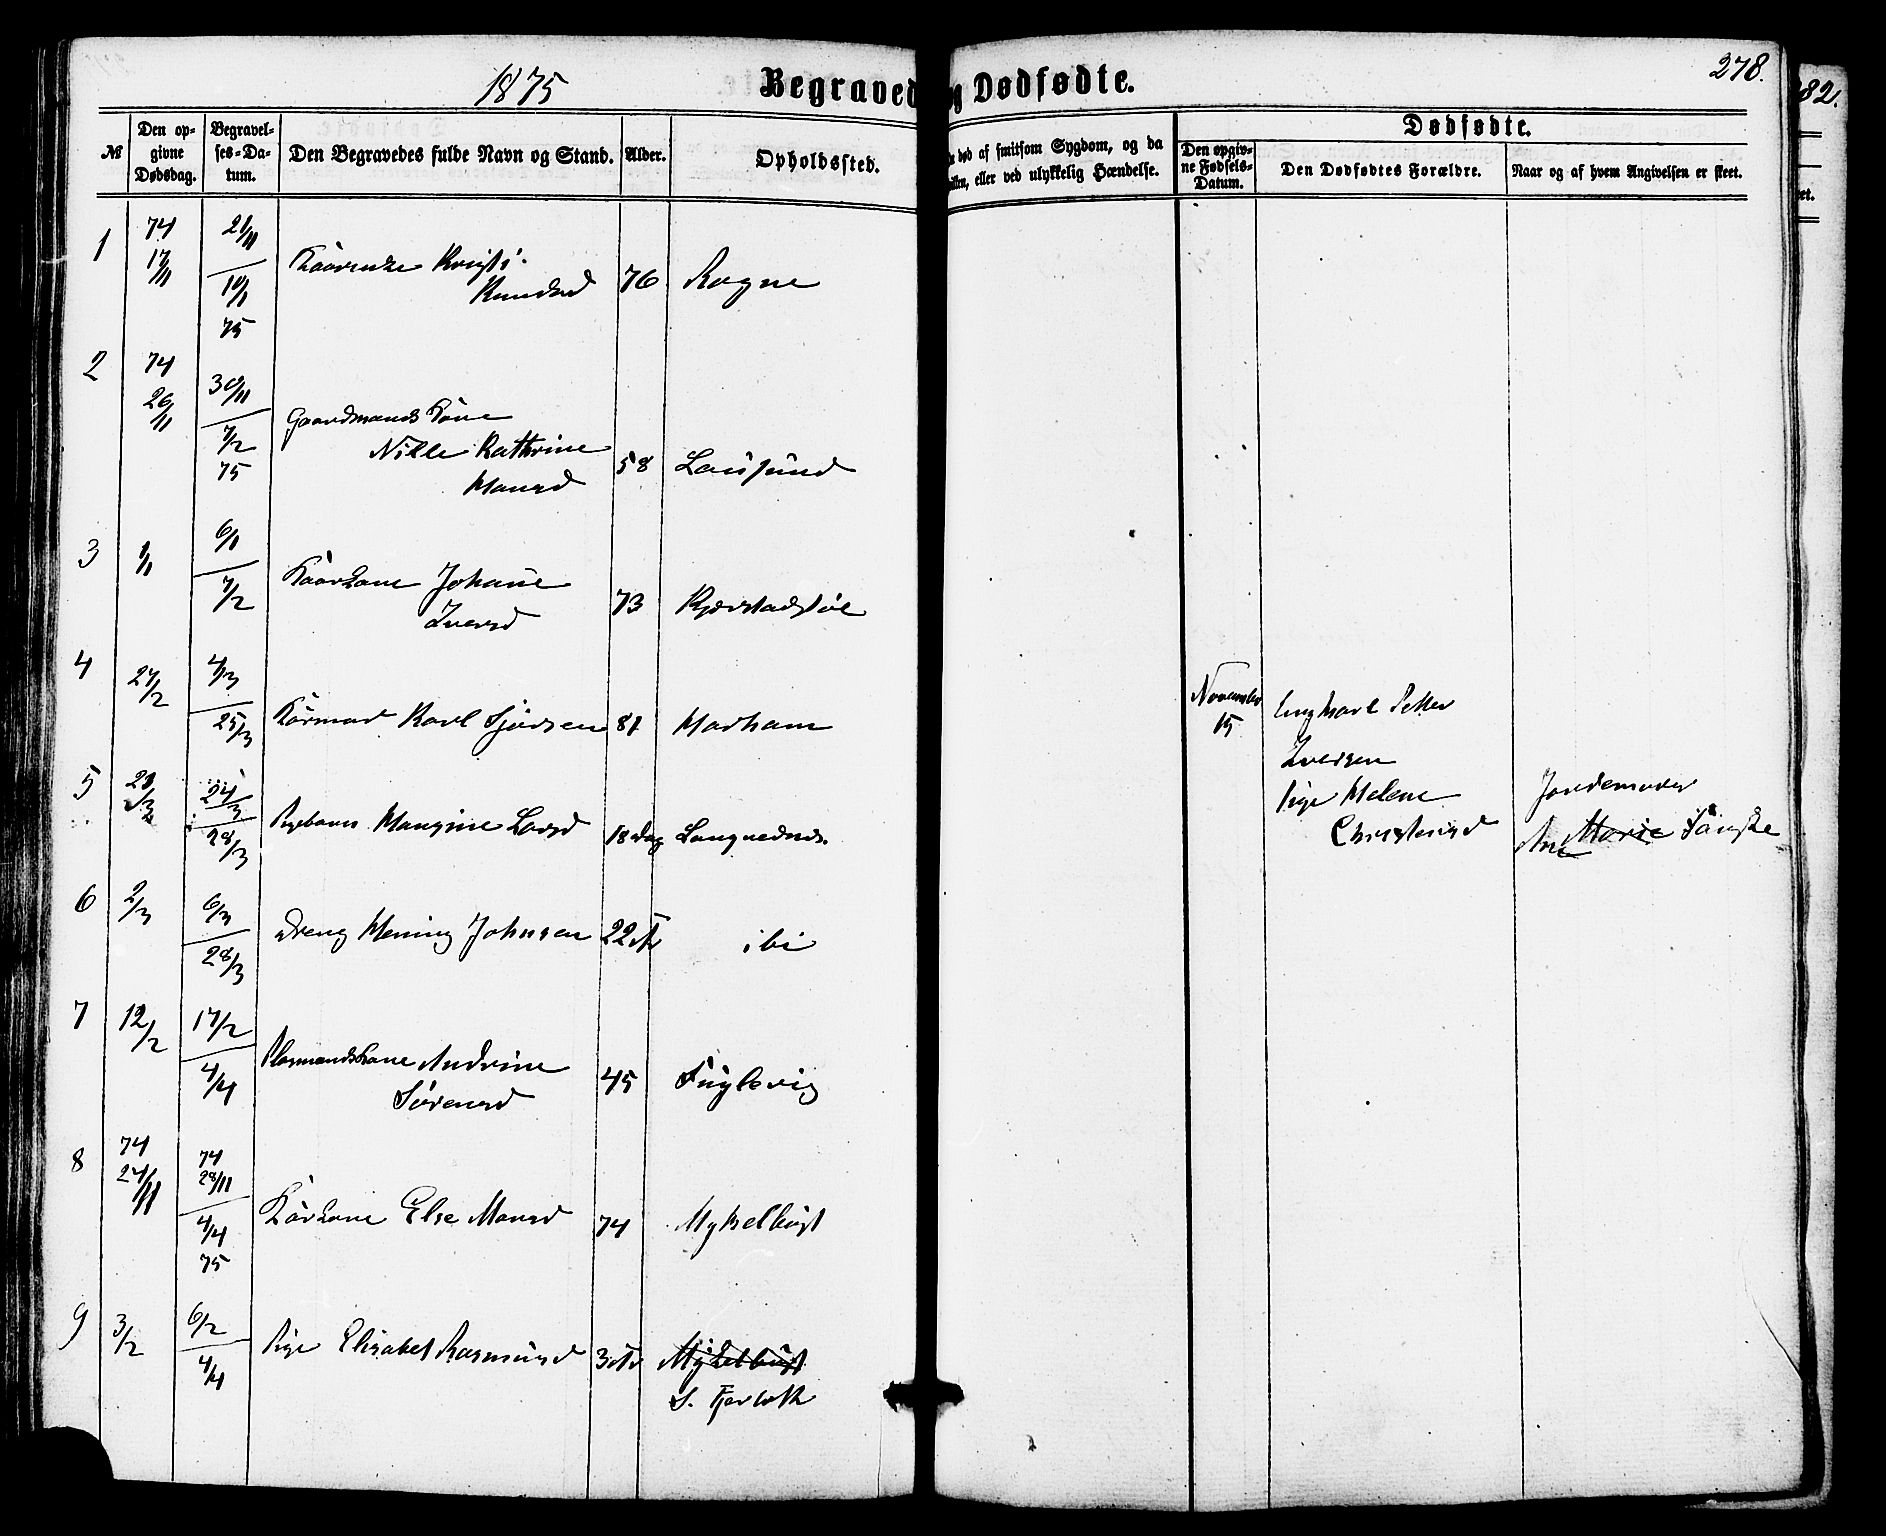 1875
Begraved
og Dødfødte.
278.
282.
№
Den op-
givne
Dødsdag.
Begravel-
ses-Da-
tum.
Den Begravedes fulde Navn og Stand.
Alder.
Opholdssted.
død af smitsom Sygdom, og da
eller ved ulykkelig Hændelse.
Dødfødte.
Den opgiv-
ne Fødsels-
Datum.
Den Dødfødtes Forældre.
Naar og af hvem Angivelsen er skeet.
1
74
17/11
21/11
10/1
75
Kristi
Knudsd
76
Rogne
2
74
26/11
30/11
7/2
75
Gaardmands Kone
Nille Kathrine
Hansd
58
Lausund
3
1/1
6/1
7/2
Kaarkone Johane
Iversd
73
Kjerstadstøl
4
27/2
4/3
25/3
Kårmand Karl Sjursen
81
Harham
5
24/3
28/3
Pigebarn Hansine Larsd
18 Dag
Longvednes.
6
2/3
6/3
28/3
Dreng Hening Johnsen
22 Ar
ibi
7
12/2
17/2
4/4
Andrine
Sørensd
45
Fuglevig
8
74
24/11
74
28/11
4/4
75
Kårkone Else Monsd
74
Myklebust
9
3/2
6/2
4/4
Pige Elisabet Rasmusd
3 Ar
Myklebust
S. Fjørtoft
November
15
Ungkarl Petter
Iversen
Pige Helene
Christensd
Jordemoder
Ane Marie